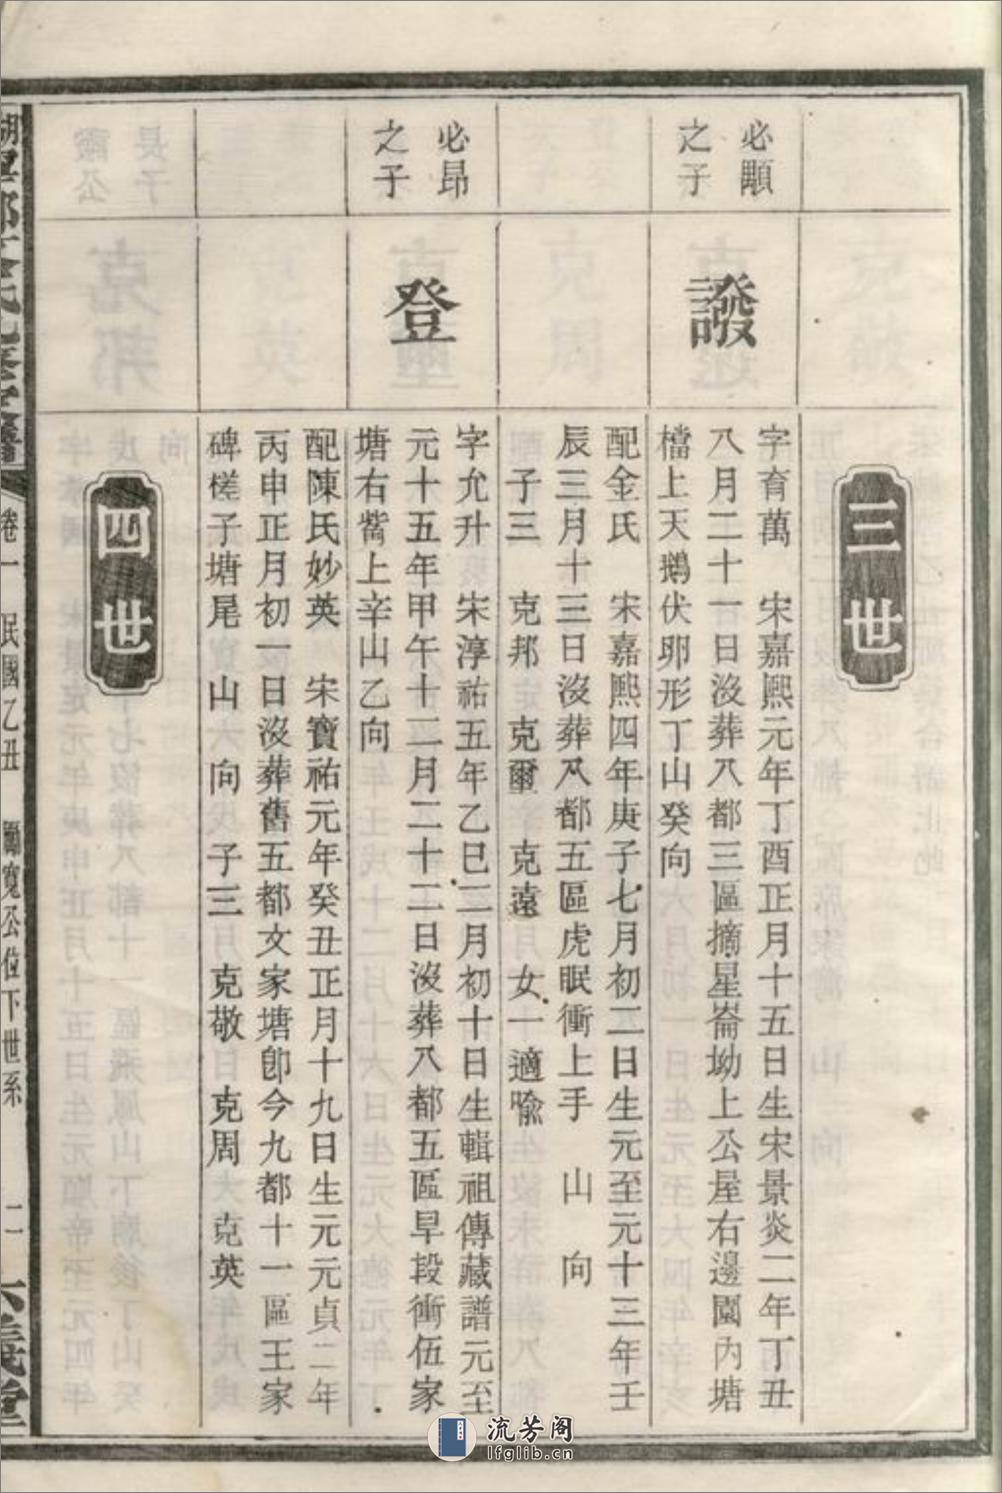 三世
必顯
之子
譭
字育萬　宋嘉熙元年丁酉正月十五日生宋景炎二年丁丑
八月二十一日沒葬八都三區摘星崙坳上公屋右邊園內塘
檔上天鵝伏卵形丁山癸向
配金氏　宋嘉熙四年庚子七月初二日生元至元十三年壬
辰三月十三日沒葬八都五區虎眠衝上手　山　向
子三　克邦　克爾　克遠　女一適喩
必昂
之子
登
字允升　宋淳祐五年乙巳二月初十日生輯祖傳藏譜元至
元十五年甲午十二月二十二日沒葬八都五區早段衝伍家
塘右觜上辛山乙向
配陳氏妙英　宋寶祐元年癸丑正月十九日生元元貞二年
丙申正月初一日沒葬舊五都文家塘卽今九都十一區王家
碑槎子塘尾　山　向　子三　克敬　克周　克英
四世
卷一　民國乙丑　公位下世系　二
流芳阁
lfglib.cn